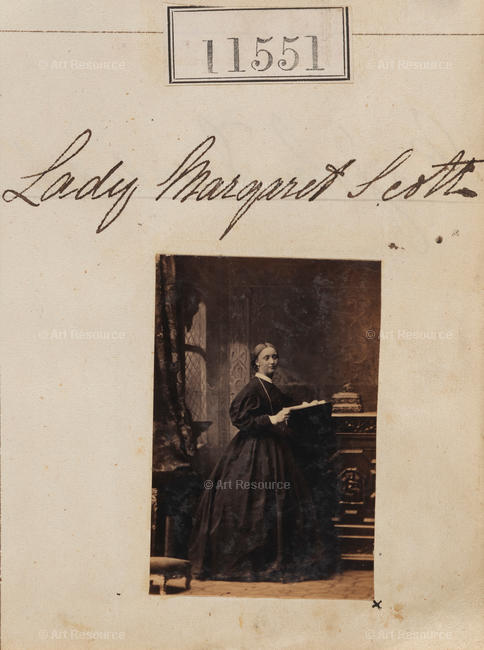 11551
© Art Resource © Art Resource
Lady Margaret Scott
© Art Resource © Art Resource
© Art Resource
© Art Resource © Art Resource
x